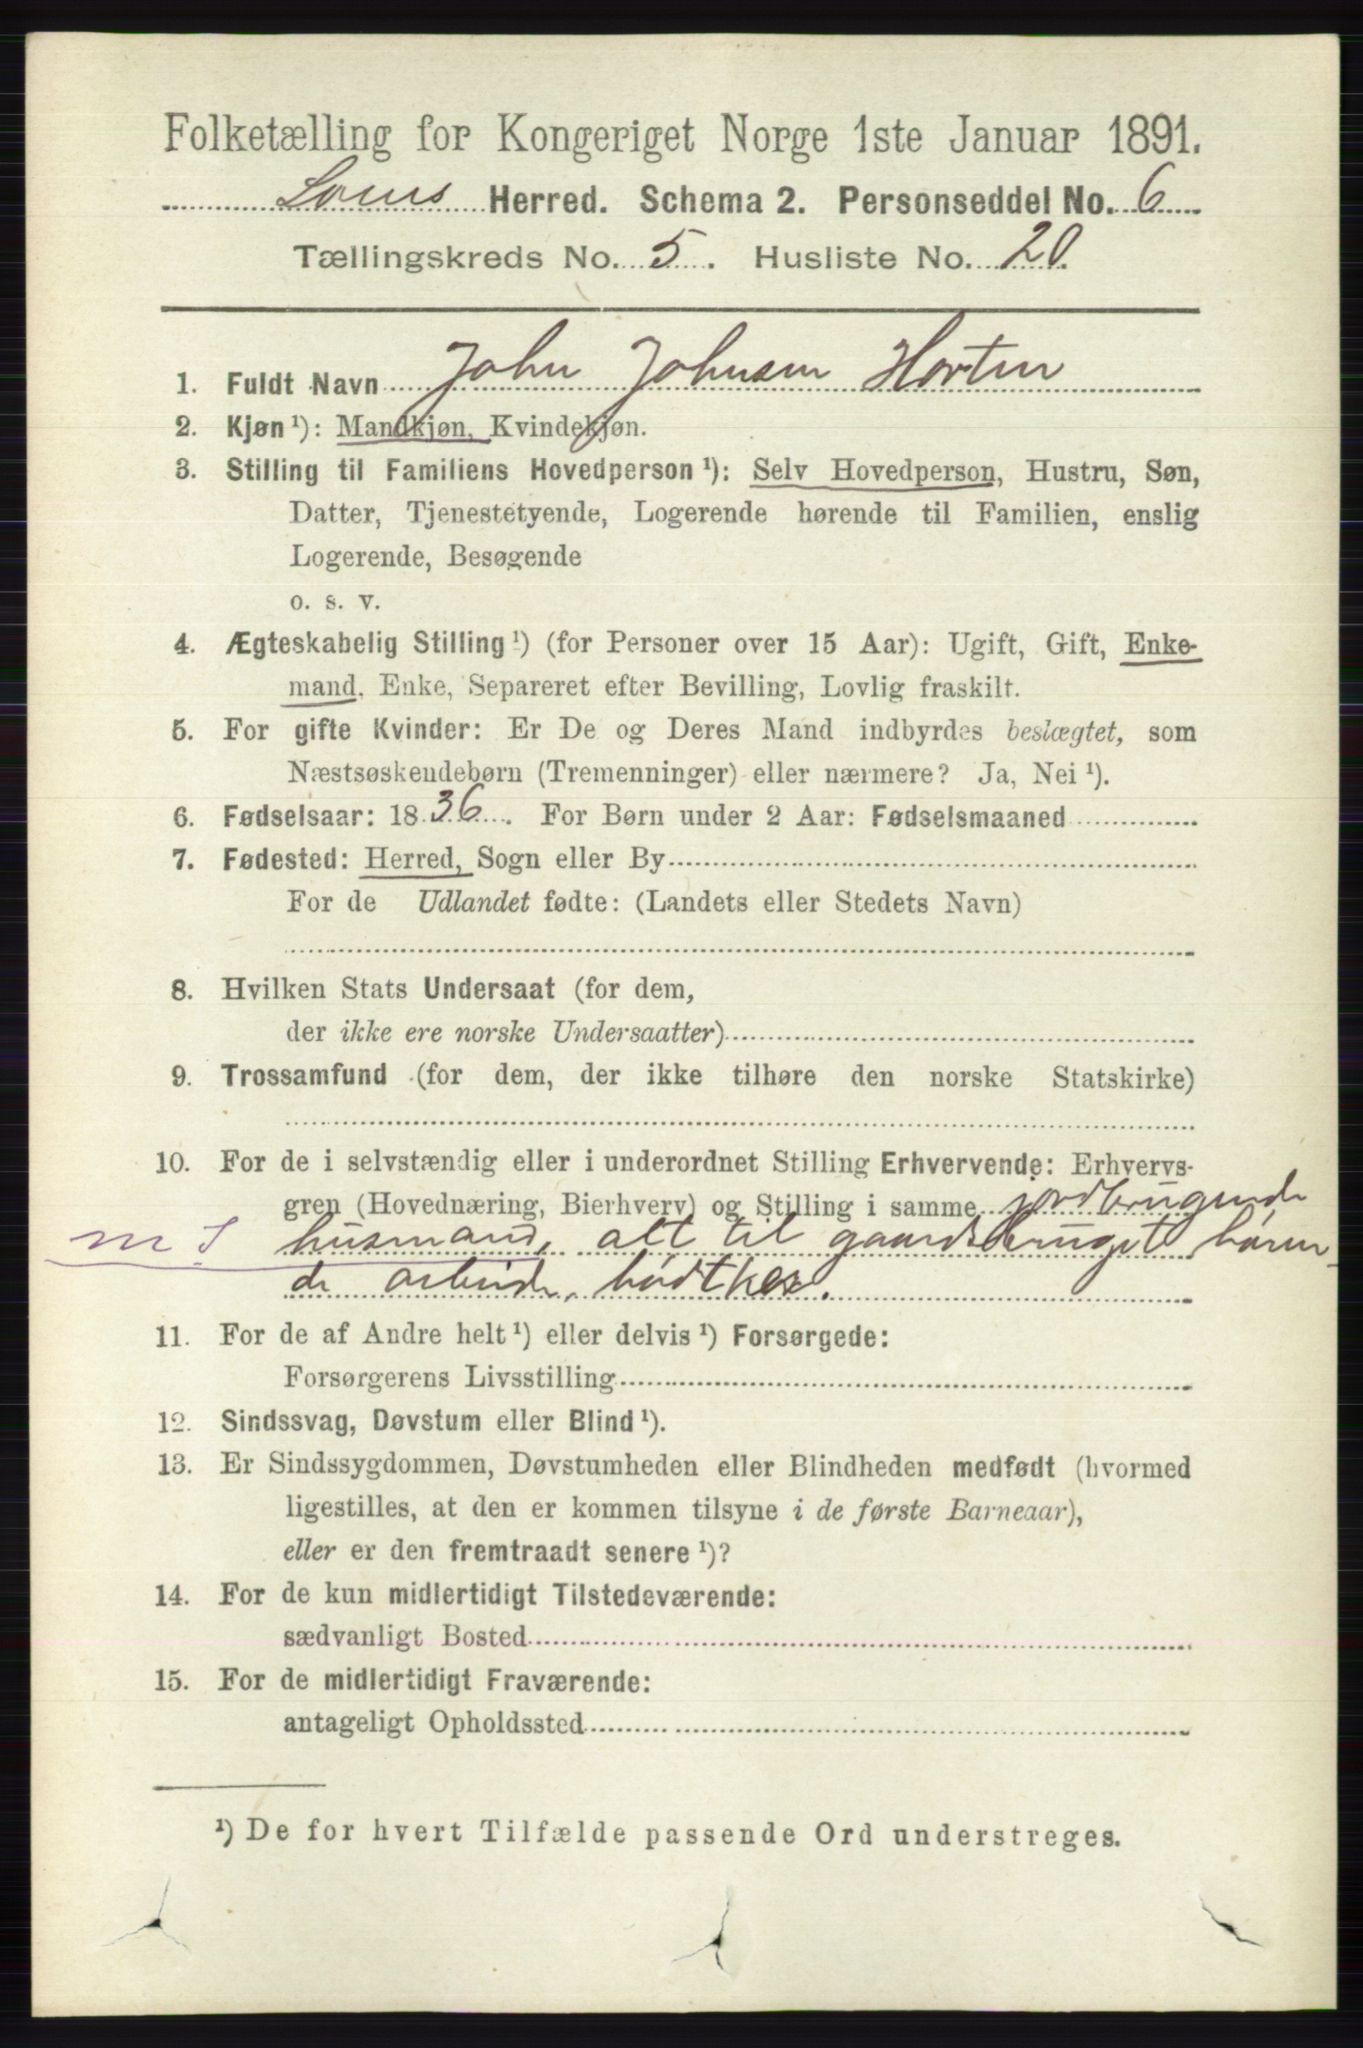 Folketælling for Kongeriget Norge 1ste Januar 1891.
Loms Herred. Schema 2. Personseddel No. 6
Tællingskreds No. 5. Husliste No. 20.
1. Fuldt Navn John Johnsen
2. Kjøn ¹): Mandkjøn, Kvindekjøn.
3. Stilling til Familiens Hovedperson ¹): Selv Hovedperson, Hustru, Søn,
Datter, Tjenestetyende, Logerende hørende til Familien, enslig
Logerende, Besøgende
o. s. v.
4. Ægteskabelig Stilling ¹) (for Personer over 15 Aar): Ugift, Gift, Enke-
mand, Enke, Separeret efter Bevilling, Lovlig fraskilt.
5. For gifte Kvinder: Er De og Deres Mand indbyrdes beslægtet, som
Næstsøskendebørn (Tremenninger) eller nærmere? Ja, Nei ¹).
6. Fødselsaar: 1836. For Børn under 2 Aar: Fødselsmaaned
7. Fødested: Herred, Sogn eller By
For de Udlandet fødte: (Landets eller Stedets Navn)
8. Hvilken Stats Undersaat (for dem,
der ikke ere norske Undersaatter)
9. Trossamfund (for dem, der ikke tilhøre den norske Statskirke)
10. For de i selvstændig eller i underordnet Stilling Erhvervende: Erhvervs-
gren (Hovednæring, Bierhverv) og Stilling i samme jordbrugende
husmand, alt til gaardsbruget høren-
de arbeide, bødtker.
11. For de af Andre helt ¹) eller delvis ¹) Forsørgede:
Forsørgerens Livsstilling
12. Sindssvag, Døvstum eller Blind ¹).
13. Er Sindssygdommen, Døvstumheden eller Blindheden medfødt (hvormed
ligestilles, at den er kommen tilsyne i de første Barneaar),
eller er den fremtraadt senere ¹)?
14. For de kun midlertidigt Tilstedeværende:
sædvanligt Bosted
15. For de midlertidigt Fraværende:
antageligt Opholdssted
¹) De for hvert Tilfælde passende Ord understreges.